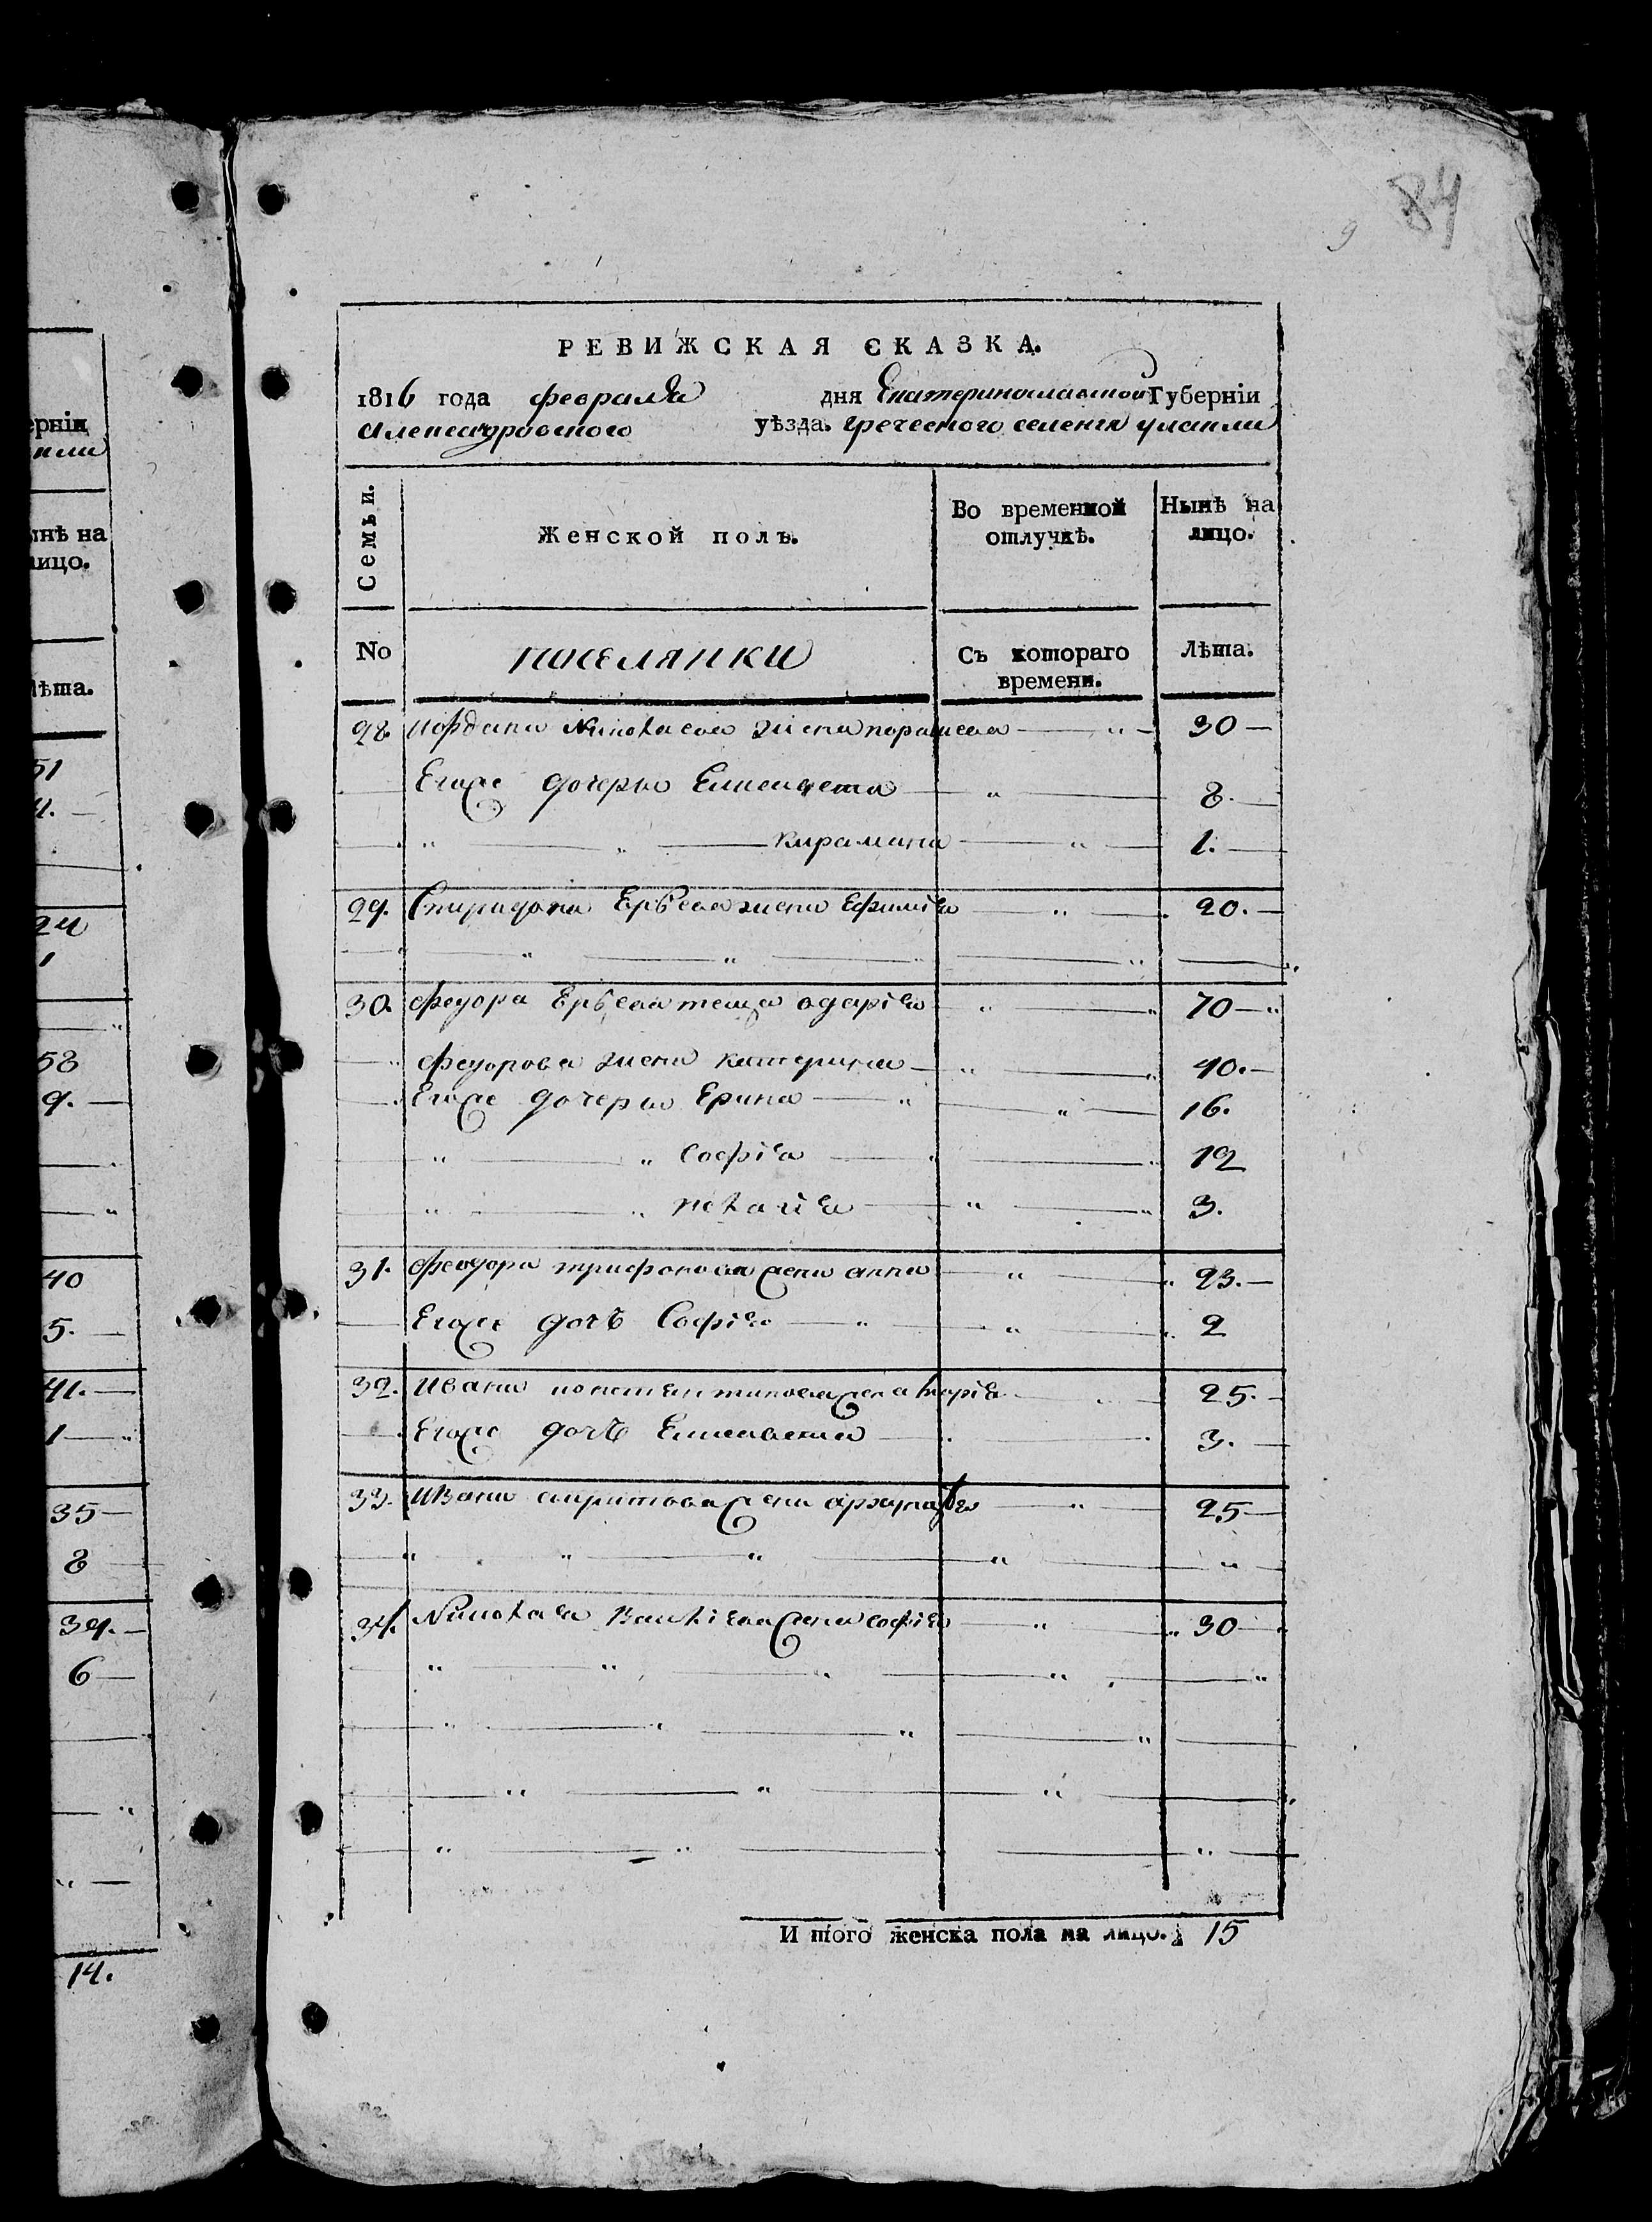 84
9
РЕВИЖСКАЯ СКАЗКА.
1816 года февраля дня Екатеринославской Губерніи
Александровского уѣзда. греческого селения улакли
Семьи. Женской полъ. Во временной отлучкѣ. Нынѣ на лицо.
No поселянки Съ котораго времени. Лѣта.
28. Иордана Николаева жена парашева 30
Егоже дочерьи Елисавета 8.
" " Кирамана 1.
29. Спиридона жена Ефимія 20.
30. Федора теща одарія 70
Федорова жена катерина 40.
Егоже дочерьи Ерина 16.
" " софія 12
" " пелагія 3.
31. Феодора трифонова жена анна 23.
Егоже дочь Софія 2
32. Ивана константинова жена марія 25.
Егоже дочь Елисавета 3.
33. Ивана жена 25
34. Николая жена софія 30
И того женска пола на лицо. 15
ерніи
кли
ынѣ на
лицо.
Лѣта.
51
4.
24
1
58
9.
40
5.
41.
1
35
8
39.
6
14.